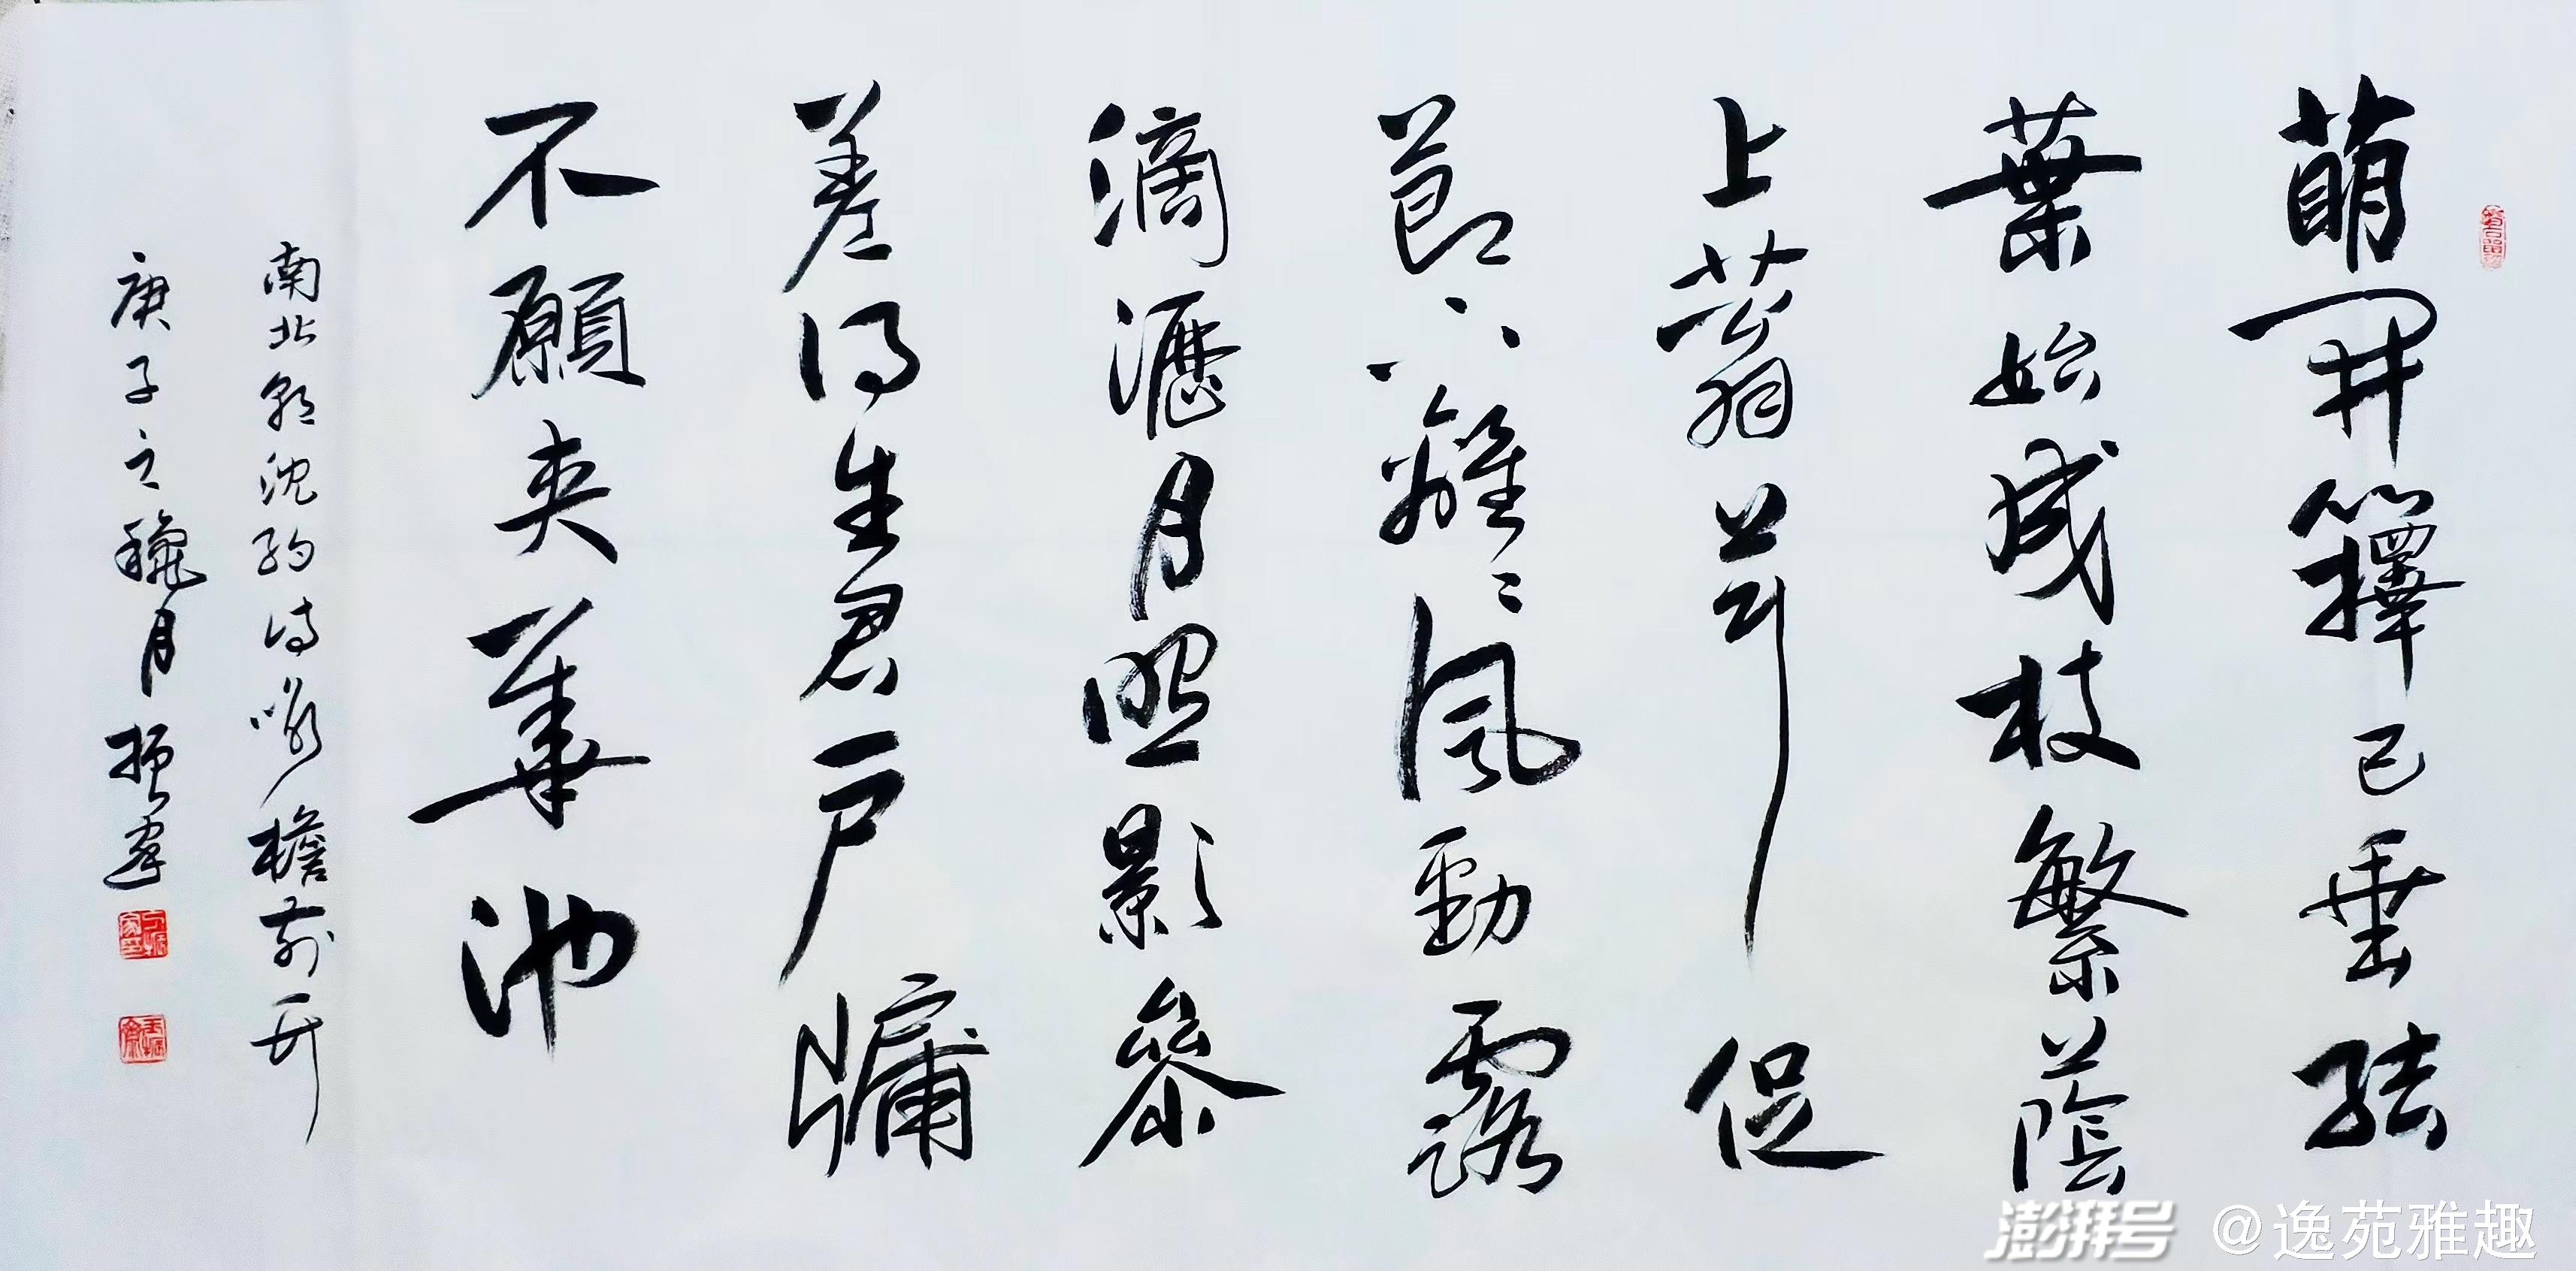 萌開籜已垂結
葉始成枝繁蔭
上蓊茸促
節下離〻風動露
滴瀝月照影參
差得生君戶牖
不願夾華池
南北朝沈約詩咏檐前竹
庚子之穐月振家
澎湃号 @逸苑雅趣